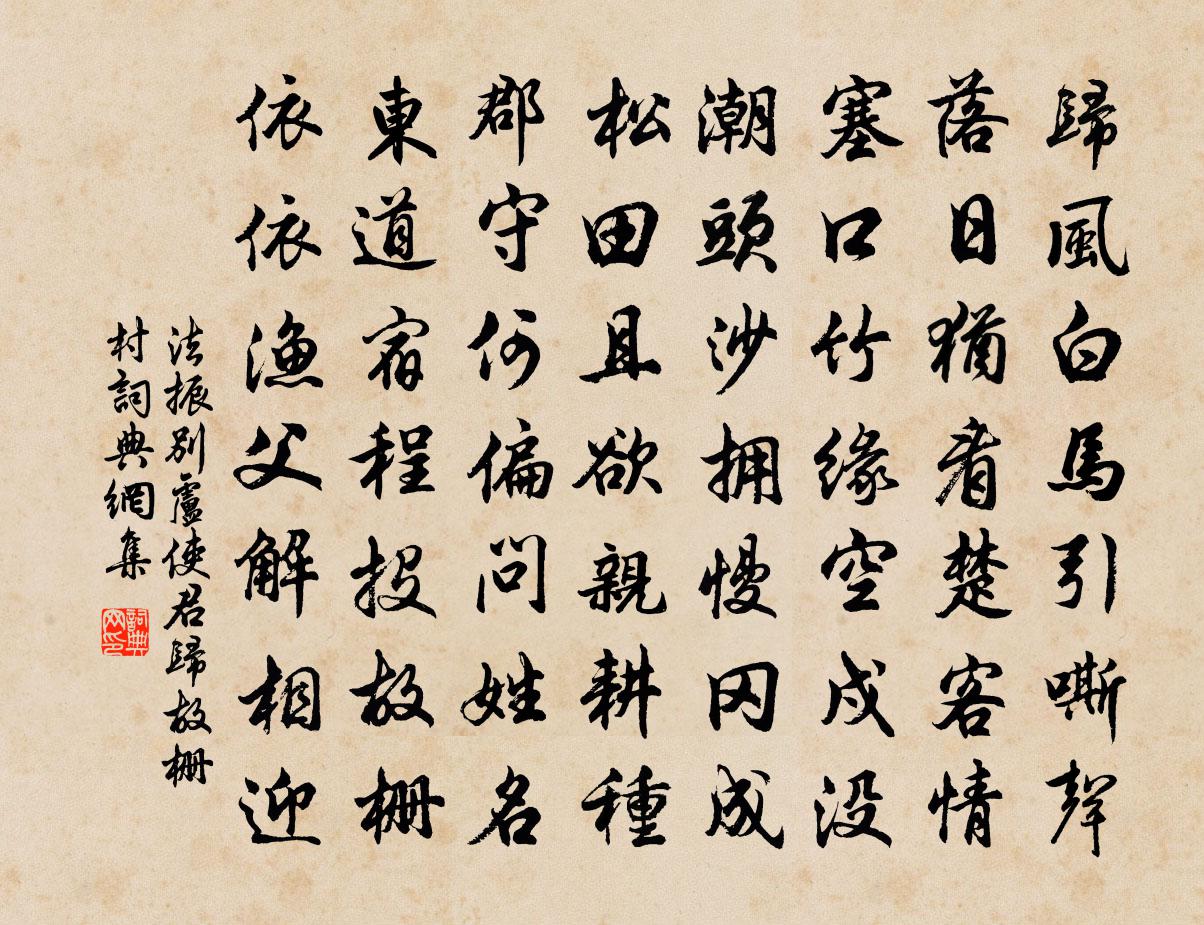 歸風白馬引嘶聲
落日猶看楚客情
塞口竹緣空戍没
潮頭沙拥慢冈成
松田且欲親耕種
郡守何偏問姓名
東道宿程投故柵
依依漁父解相迎
法振別盧使君歸故柵
村詞典網集
詞典网印